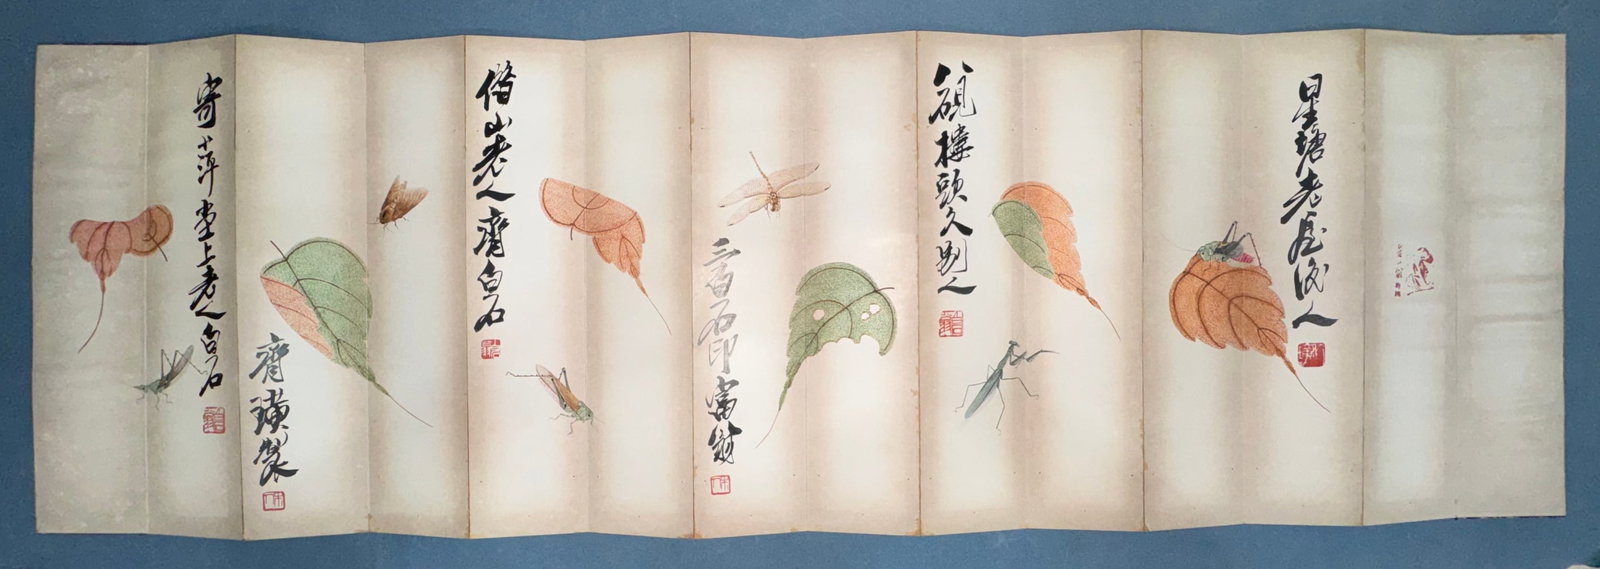 星塘老屋後人
硯樓頭久別人
三百石印富翁
借山老人齊白石
齊璜製
寄萍堂上老人白石